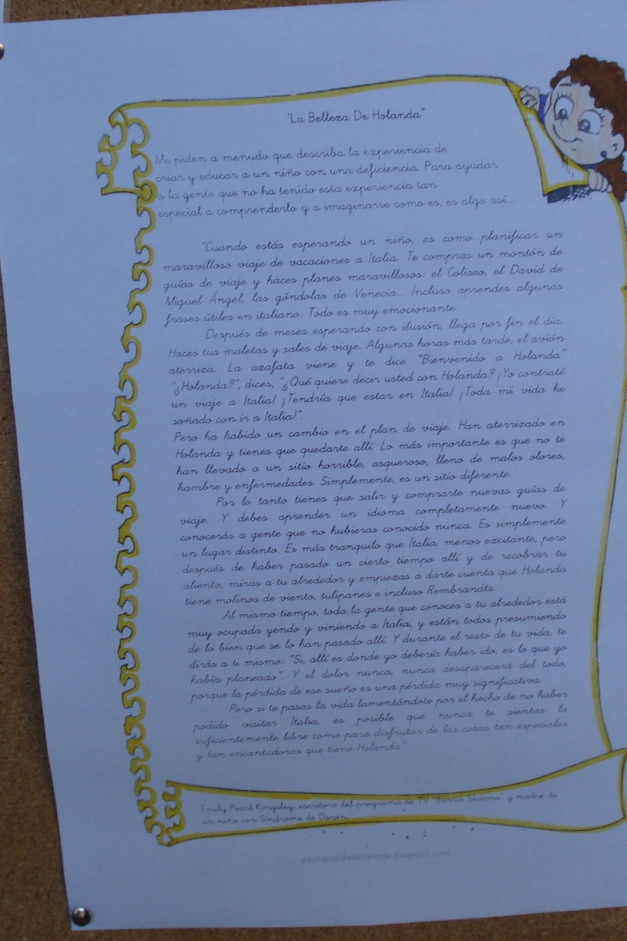 "La Belleza De Holanda"
Me piden a menudo que describa la experiencia de
criar y educar a un niño con una deficiencia. Para ayudar
a la gente que no ha tenido esta experiencia tan
especial a comprenderlo y a imaginarse como es, es algo así...
"Cuando estás esperando un niño, es como planificar un
maravilloso viaje de vacaciones a Italia. Te compras un montón de
guías de viaje y haces planes maravillosos: el Coliseo, el David de
Miguel Ángel, las góndolas de Venecia... Incluso aprendes algunas
frases útiles en italiano. Todo es muy emocionante.
Después de meses esperando con ilusión, llega por fin el día.
Haces tus maletas y sales de viaje. Algunas horas más tarde, el avión
aterriza. La azafata viene y te dice "Bienvenido a Holanda"
"¿Holanda?", dices, "¿Qué quiere decir usted con Holanda? ¡Yo contraté
un viaje a Italia! ¡Tendría que estar en Italia! ¡Toda mi vida he
soñado con ir a Italia!".
Pero ha habido un cambio en el plan de viaje. Han aterrizado en
Holanda y tienes que quedarte allí. Lo más importante es que no te
han llevado a un sitio horrible, asqueroso, lleno de malos olores,
hambre y enfermedades. Simplemente, es un sitio diferente.
Por lo tanto tienes que salir y comprarte nuevas guías de
viaje. Y debes aprender un idioma completamente nuevo. Y
conocerás a gente que no hubieras conocido nunca. Es simplemente
un lugar distinto. Es más tranquilo que Italia, menos excitante, pero
después de haber pasado un cierto tiempo allí y de recobrar tu
aliento, miras a tu alrededor y empiezas a darte cuenta que Holanda
tiene molinos de viento, tulipanes e incluso Rembrandts.
Al mismo tiempo, toda la gente que conoces a tu alrededor está
muy ocupada yendo y viniendo a Italia, y están todos presumiendo
de lo bien que se lo han pasado allí. Y durante el resto de tu vida, te
dirás a ti mismo: "Sí, allí es donde yo debería haber ido, es lo que yo
había planeado". Y el dolor nunca, nunca desaparecerá del todo,
porque la pérdida de ese sueño es una pérdida muy significativa.
Pero si te pasas la vida lamentándote por el hecho de no haber
podido visitar Italia, es posible que nunca te sientas lo
suficientemente libre como para disfrutar de las cosas tan especiales
y tan encantadoras que tiene Holanda"
Emily Pearl Kingsley, escritora del programa de TV "Barrio Sésamo" y madre de
un niño con Síndrome de Down.